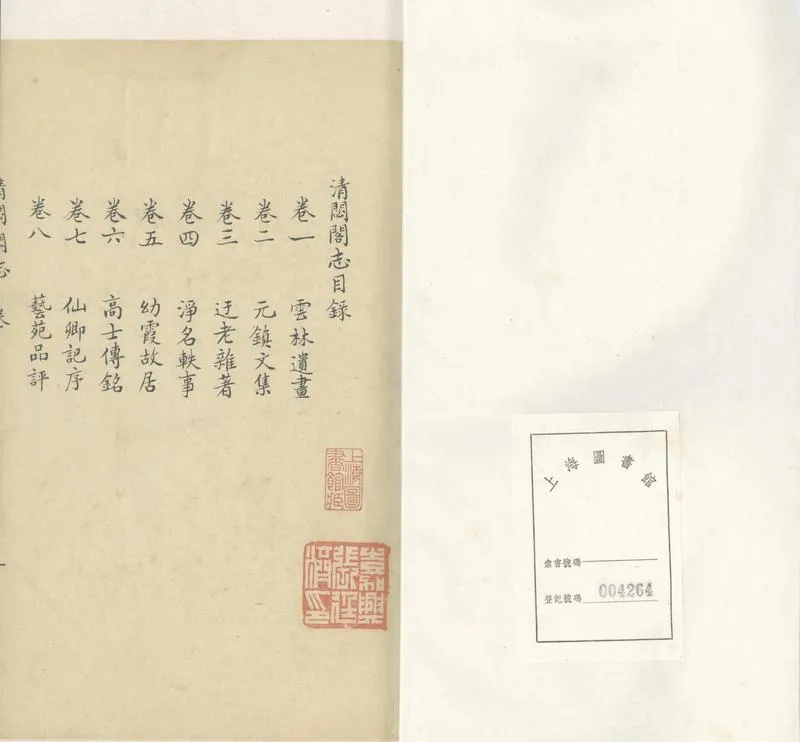 上海圖書館
索書號碼
登記號碼 004264
清閟閣志目錄
卷一 雲林遺畫
卷二 元鎮文集
卷三 迂老雜著
卷四 淨名軼事
卷五 幼霞故居
卷六 高士傳銘
卷七 仙卿記序
卷八 藝苑品評
上海圖書館藏
嘉興張廷濟印